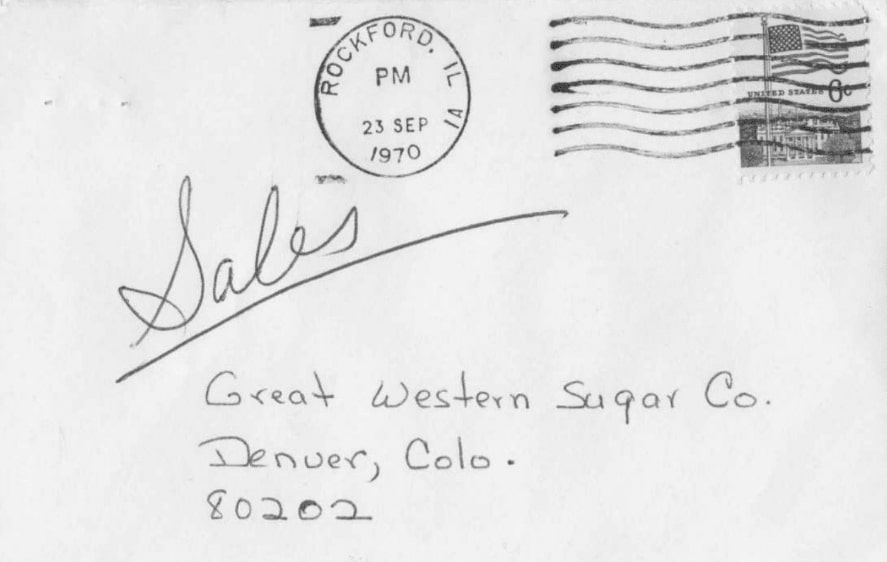 ROCKFORD, IL
PM
1A
23 SEP
1970
UNITED STATES 6c
Sales
Great Western Sugar Co.
Denver, Colo.
80202